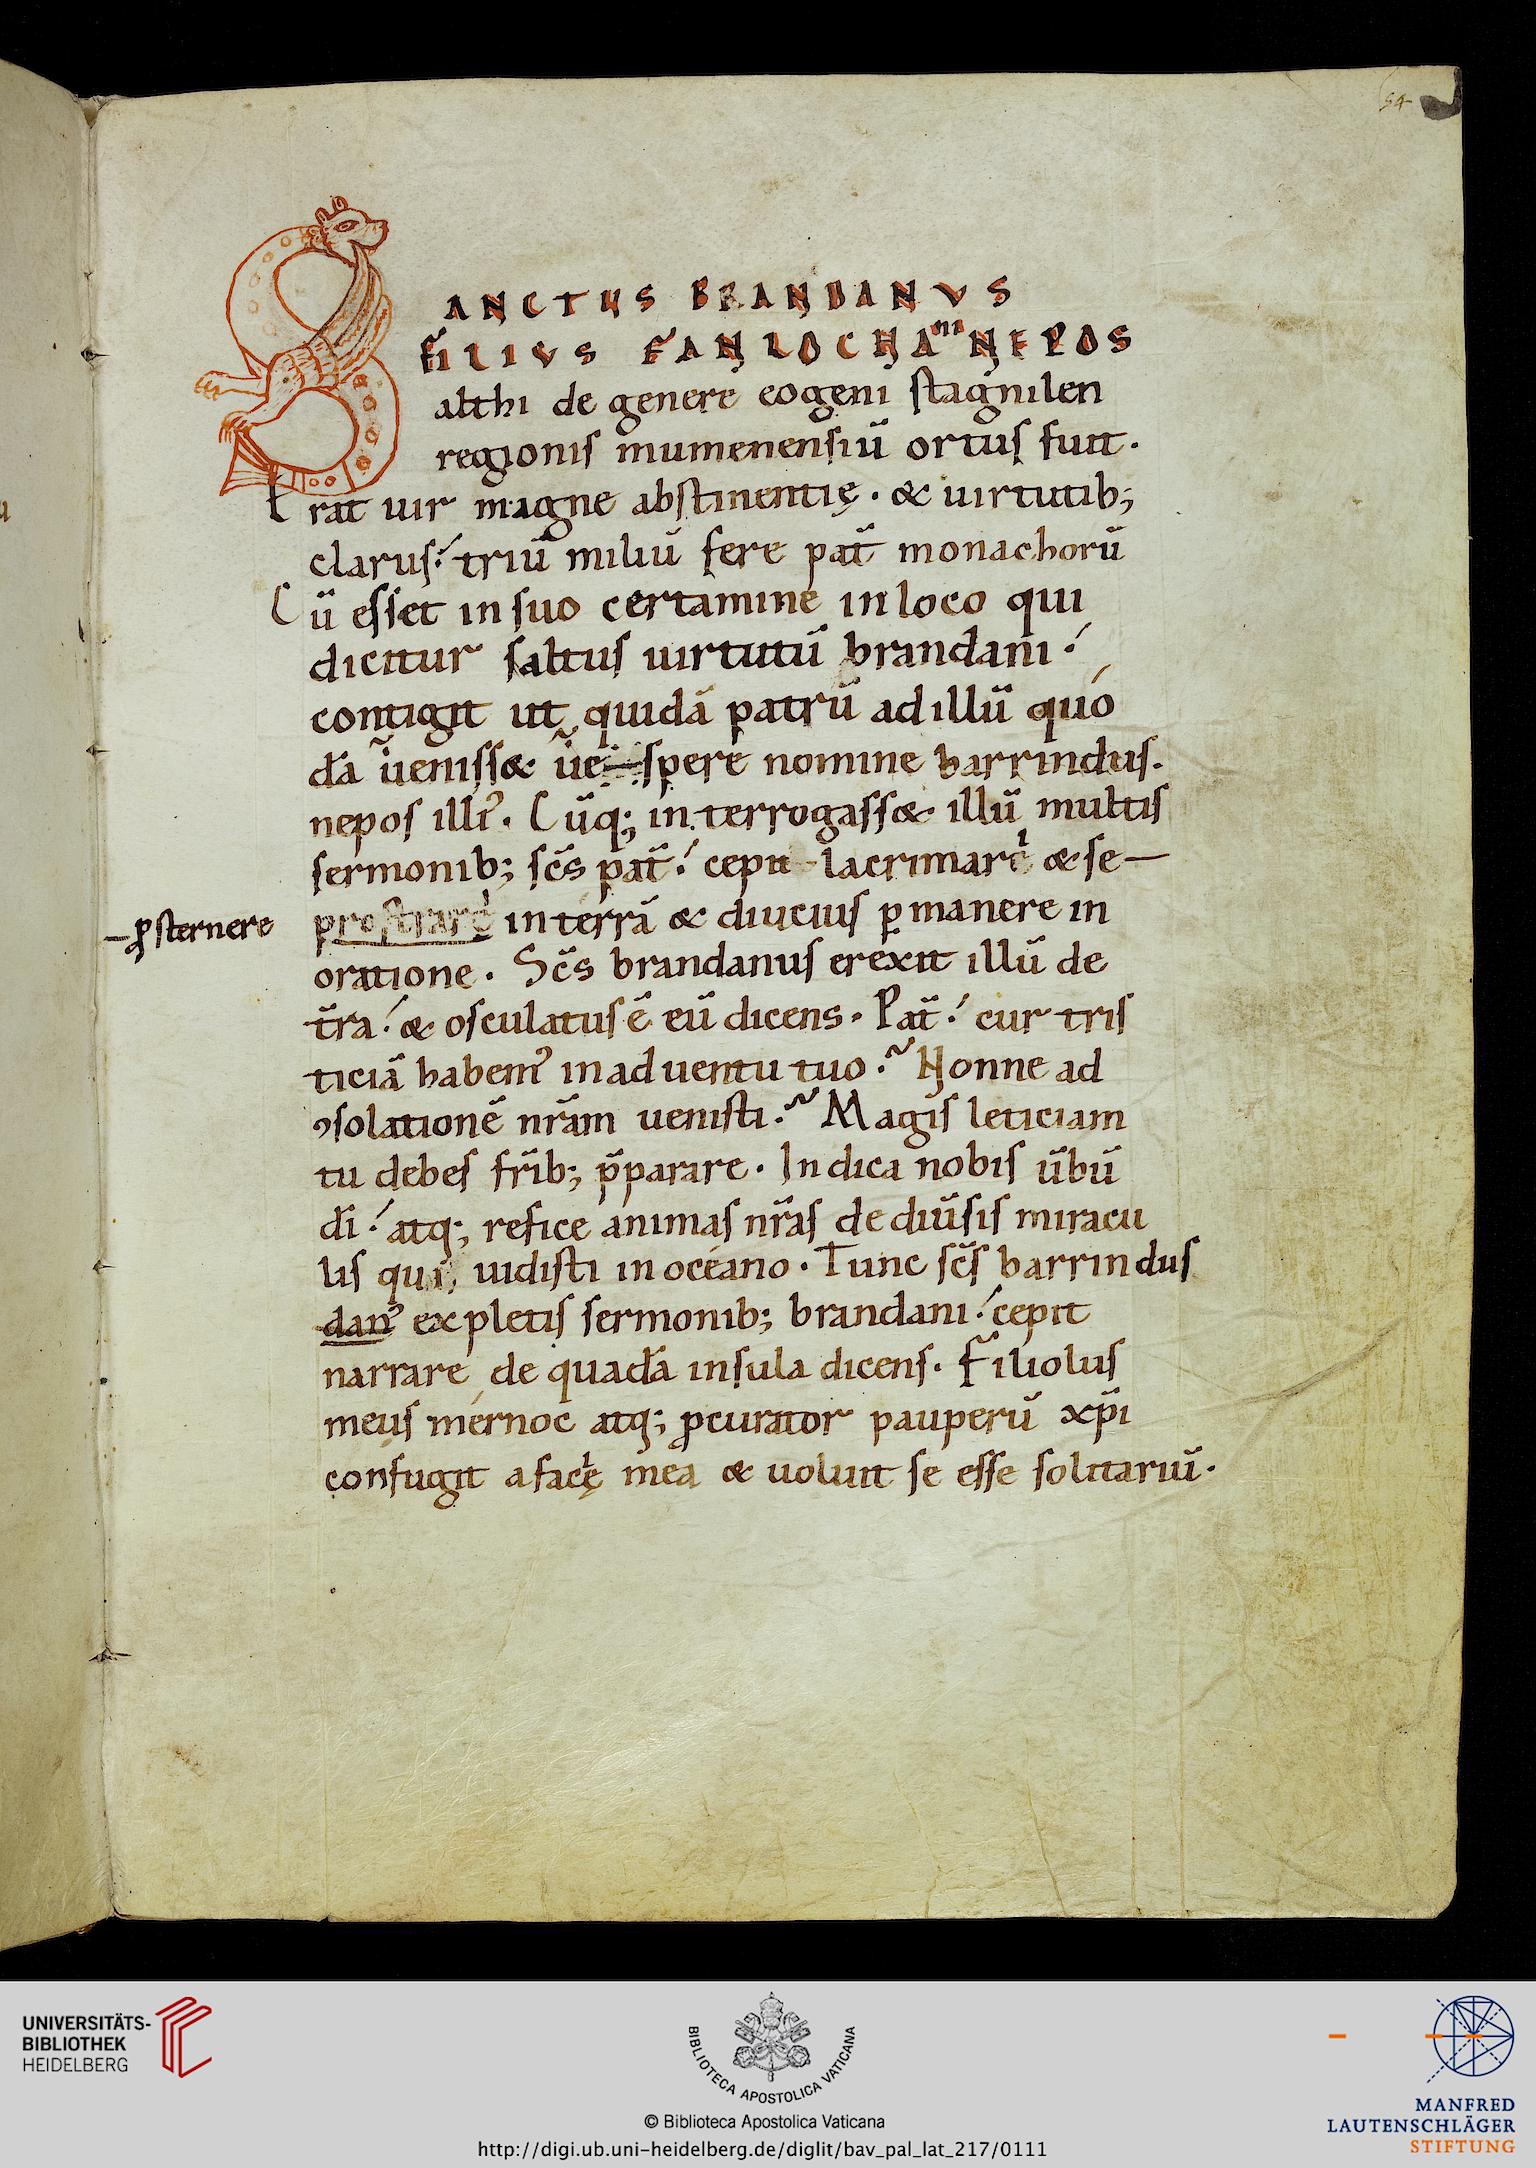 54
SANCTUS BRANDANVS
FILIVS FANLOCHA NEPOS
althi de genere eogeni stagnilen
regionis mumenensiū ortus fuit.
Erat uir magne abstinentię. & uirtutib;
clarus. triū miliū fere pat̄ monachorū
Cū esset in suo certamine in loco qui
dicitur saltus uirtutū brandani.
contigit ut quidā patrū ad illū quo
dā uenisset uespere nomine barrindus.
nepos illiꝰ. Cūq; interrogasset illū multis
sermonib; sc̄s pat̄. cepit lacrimare & se
ꝓsternere
prostrare in terrā & diucius ꝑmanere in
oratione. Sc̄s brandanus erexit illū de
t̄ra. & osculatus ē eū dicens. Pat̄. cur tris
ticiā habemꝰ in aduentu tuo. Nonne ad
ꝯsolationē nr̄am uenisti. Magis leticiam
tu debes fr̄ib; p̄parare. Indica nobis ūbū
dī. atq; refice animas nr̄as de diūsis miracu
lis q; uidisti in oceano. Tunc sc̄s barrindus
danꝰ expletis sermonib; brandani. cepit
narrare de quadā insula dicens. Filiolus
meus mernoc atq; ꝓcurator pauperū xp̄i
confugit a facię mea & uoluit se esse solitariū.
UNIVERSITÄTS-
BIBLIOTHEK
HEIDELBERG
BIBLIOTECA APOSTOLICA VATICANA
© Biblioteca Apostolica Vaticana
http://digi.ub.uni-heidelberg.de/diglit/bav_pal_lat_217/0111
MANFRED
LAUTENSCHLÄGER
STIFTUNG